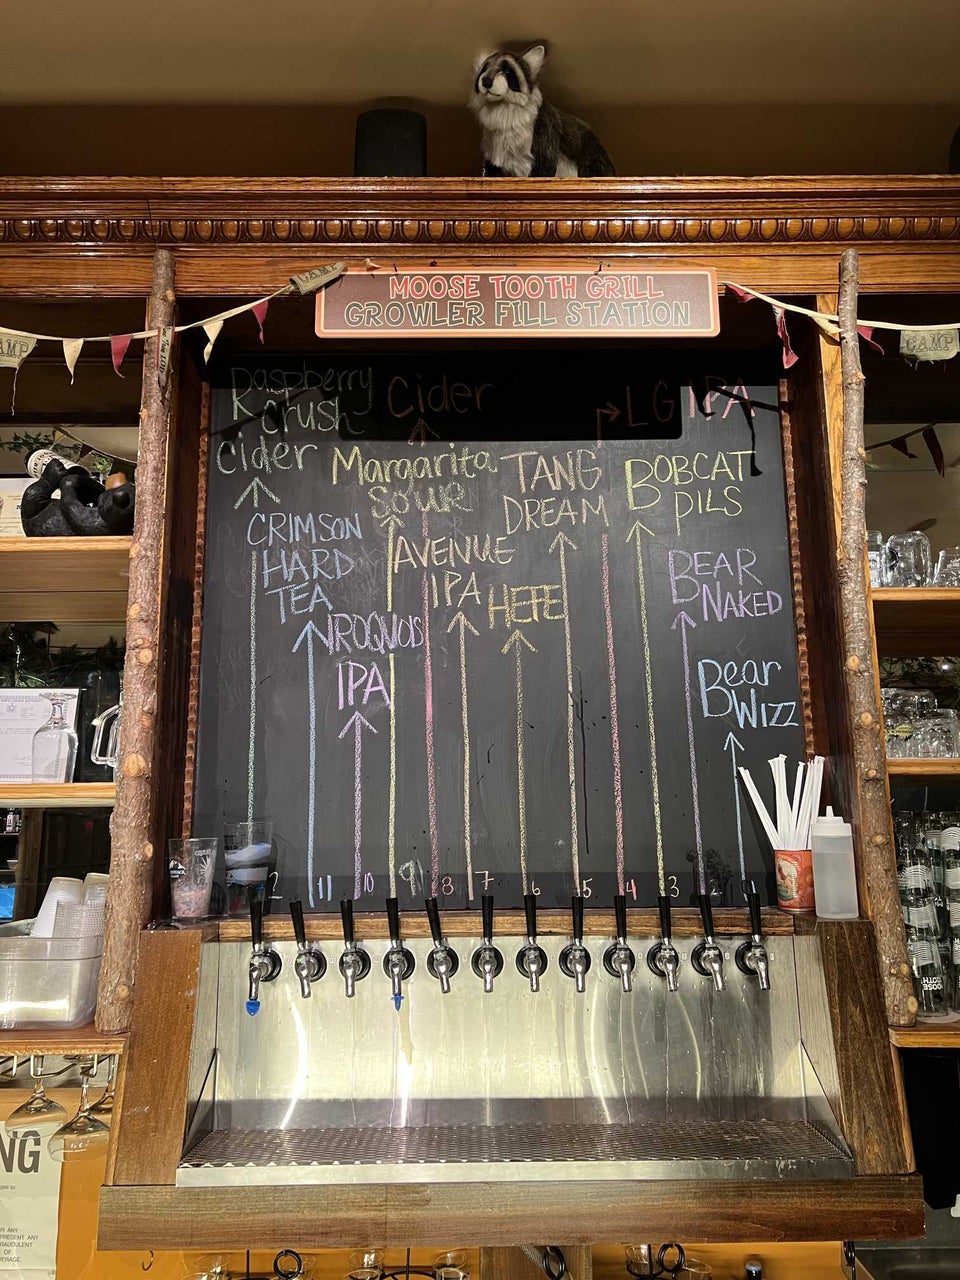 MOOSE TOOTH GRILL
GROWLER FILL STATION
CAMP
AMP
CAMP
Raspberry
Crush
Cider
Cider
LG IPA
Margarita
Sour
TANG
DREAM
BOBCAT
PILS
CRIMSON
HARD
TEA
AVENUE
IPA
HEFE
BEAR
NAKED
IROQUOIS
IPA
Bear
Wizz
2
11
10
9
8
7
6
5
4
3
2
1
NG
R ANY
PRESENT ANY
RAUDULENT
OF
VERAGE.